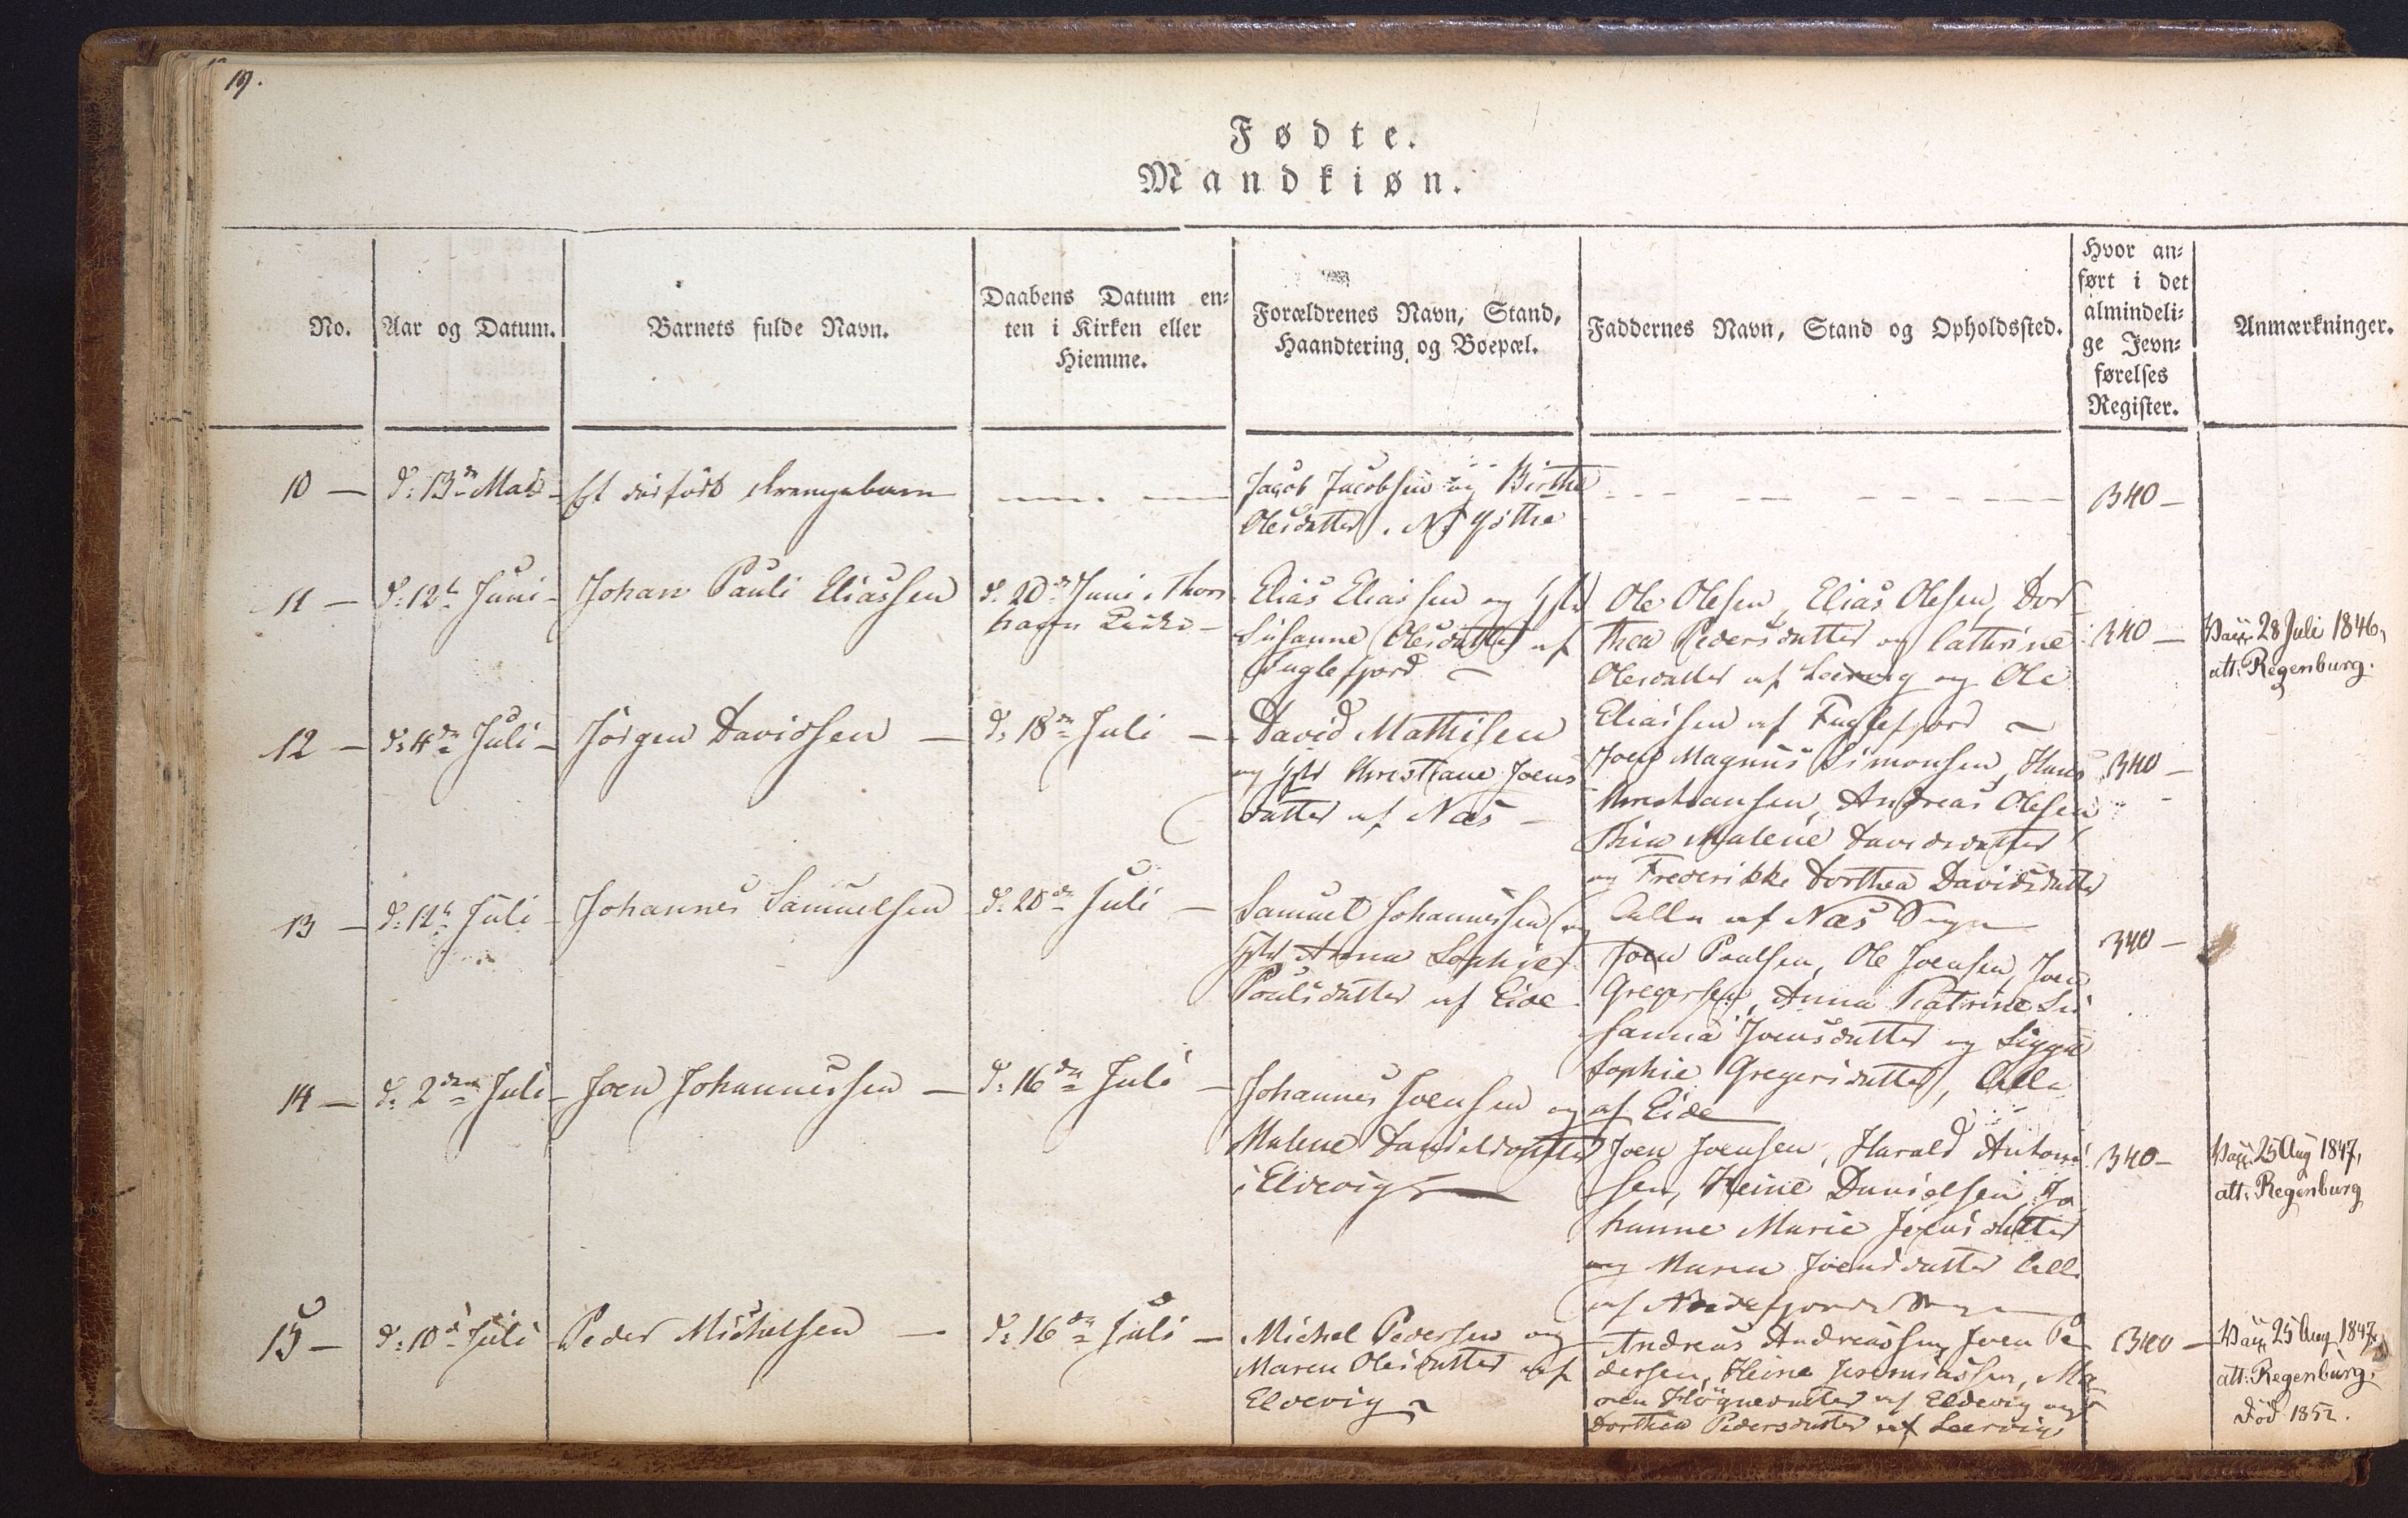 19.
Fødte.
Mandkiøn.
No.
Aar og Datum.
Barnets fulde Navn.
Daabens Datum en-
ten i Kirken eller
Hiemme.
Forældrenes Navn, Stand,
Haandtering og Boepæl.
Faddernes Navn, Stand og Opholdssted.
Hvor an-
ført i det
almindeli-
ge Jevn-
førelses
Register.
Anmærkninger.
10 —
d: 13de Mai
Et dødfødt drengebarn
Jacob Jacobsen og Birthe
Olesdatter. N. Gøthe
340 —
11 —
d: 12t Juni
Johan Pauli Eliassen
d. 20de Juni i Thors
havn Kirke —
Elias Eliassen og
Susanne Olesdatter af
Fuglefjord —
Ole Olesen, Elias Olesen, Dor
thea Pedersdatter og Cathrine
Olesdatter af Leervig og Ole
Eliassen af Fuglefjord —
340 —
Vacc. 28 Juli 1846,
att: Regenburg.
12 —
d: 4de Juli —
Jörgen Davidsen —
d: 18de Juli —
David Mathisen
og Christiane Joens
datter af Næs —
Joen Magnus Simonsen, Hans
Christiansen, Andreas Olesen
Malene Davidsdatter
og Frederikke Dorthea Davidsdatter
Alle af Næs Sogn
340 —
13 —
d: 12t Juli —
Johannes Samuelsen
d: 20de Juli —
Samuel Johannessen og
Anna Sophie
Poulsdatter af Eide
Joen Poulsen, Ole Joensen, Joen
Gregersen, Anna Katrine Su
sanna Joensdatter og Sigga
Sophie Gregersdatter, Alle
af Eide
340 —
14 —
d: 2den Juli —
Joen Johannessen —
d: 16de Juli —
Johannes Joensen og
Malene Danielsdatter
i Eldevig
Joen Joensen, Harald Antoni
sen, Heine Danielsen, Jo
hanne Marie Joensdatter
og Maren Joensdatter Alle
af Andefjords Sogn
340 —
Vacc. 25 Aug 1847,
att: Regenburg
15 —
d: 10de Juli
Peder Michelsen —
d: 16de Juli —
Michel Pedersen og
Maren Olesdatter af
Eldevig
Andreas Andreassen, Joen Pe
dersen, Heine Jeremiassen, Ma
ren Høgnedatter af Eldevig og
Dorthea Pedersdatter af Leervig
340 —
Vacc. 25 Aug 1847,
att: Regenburg.
död 1852.